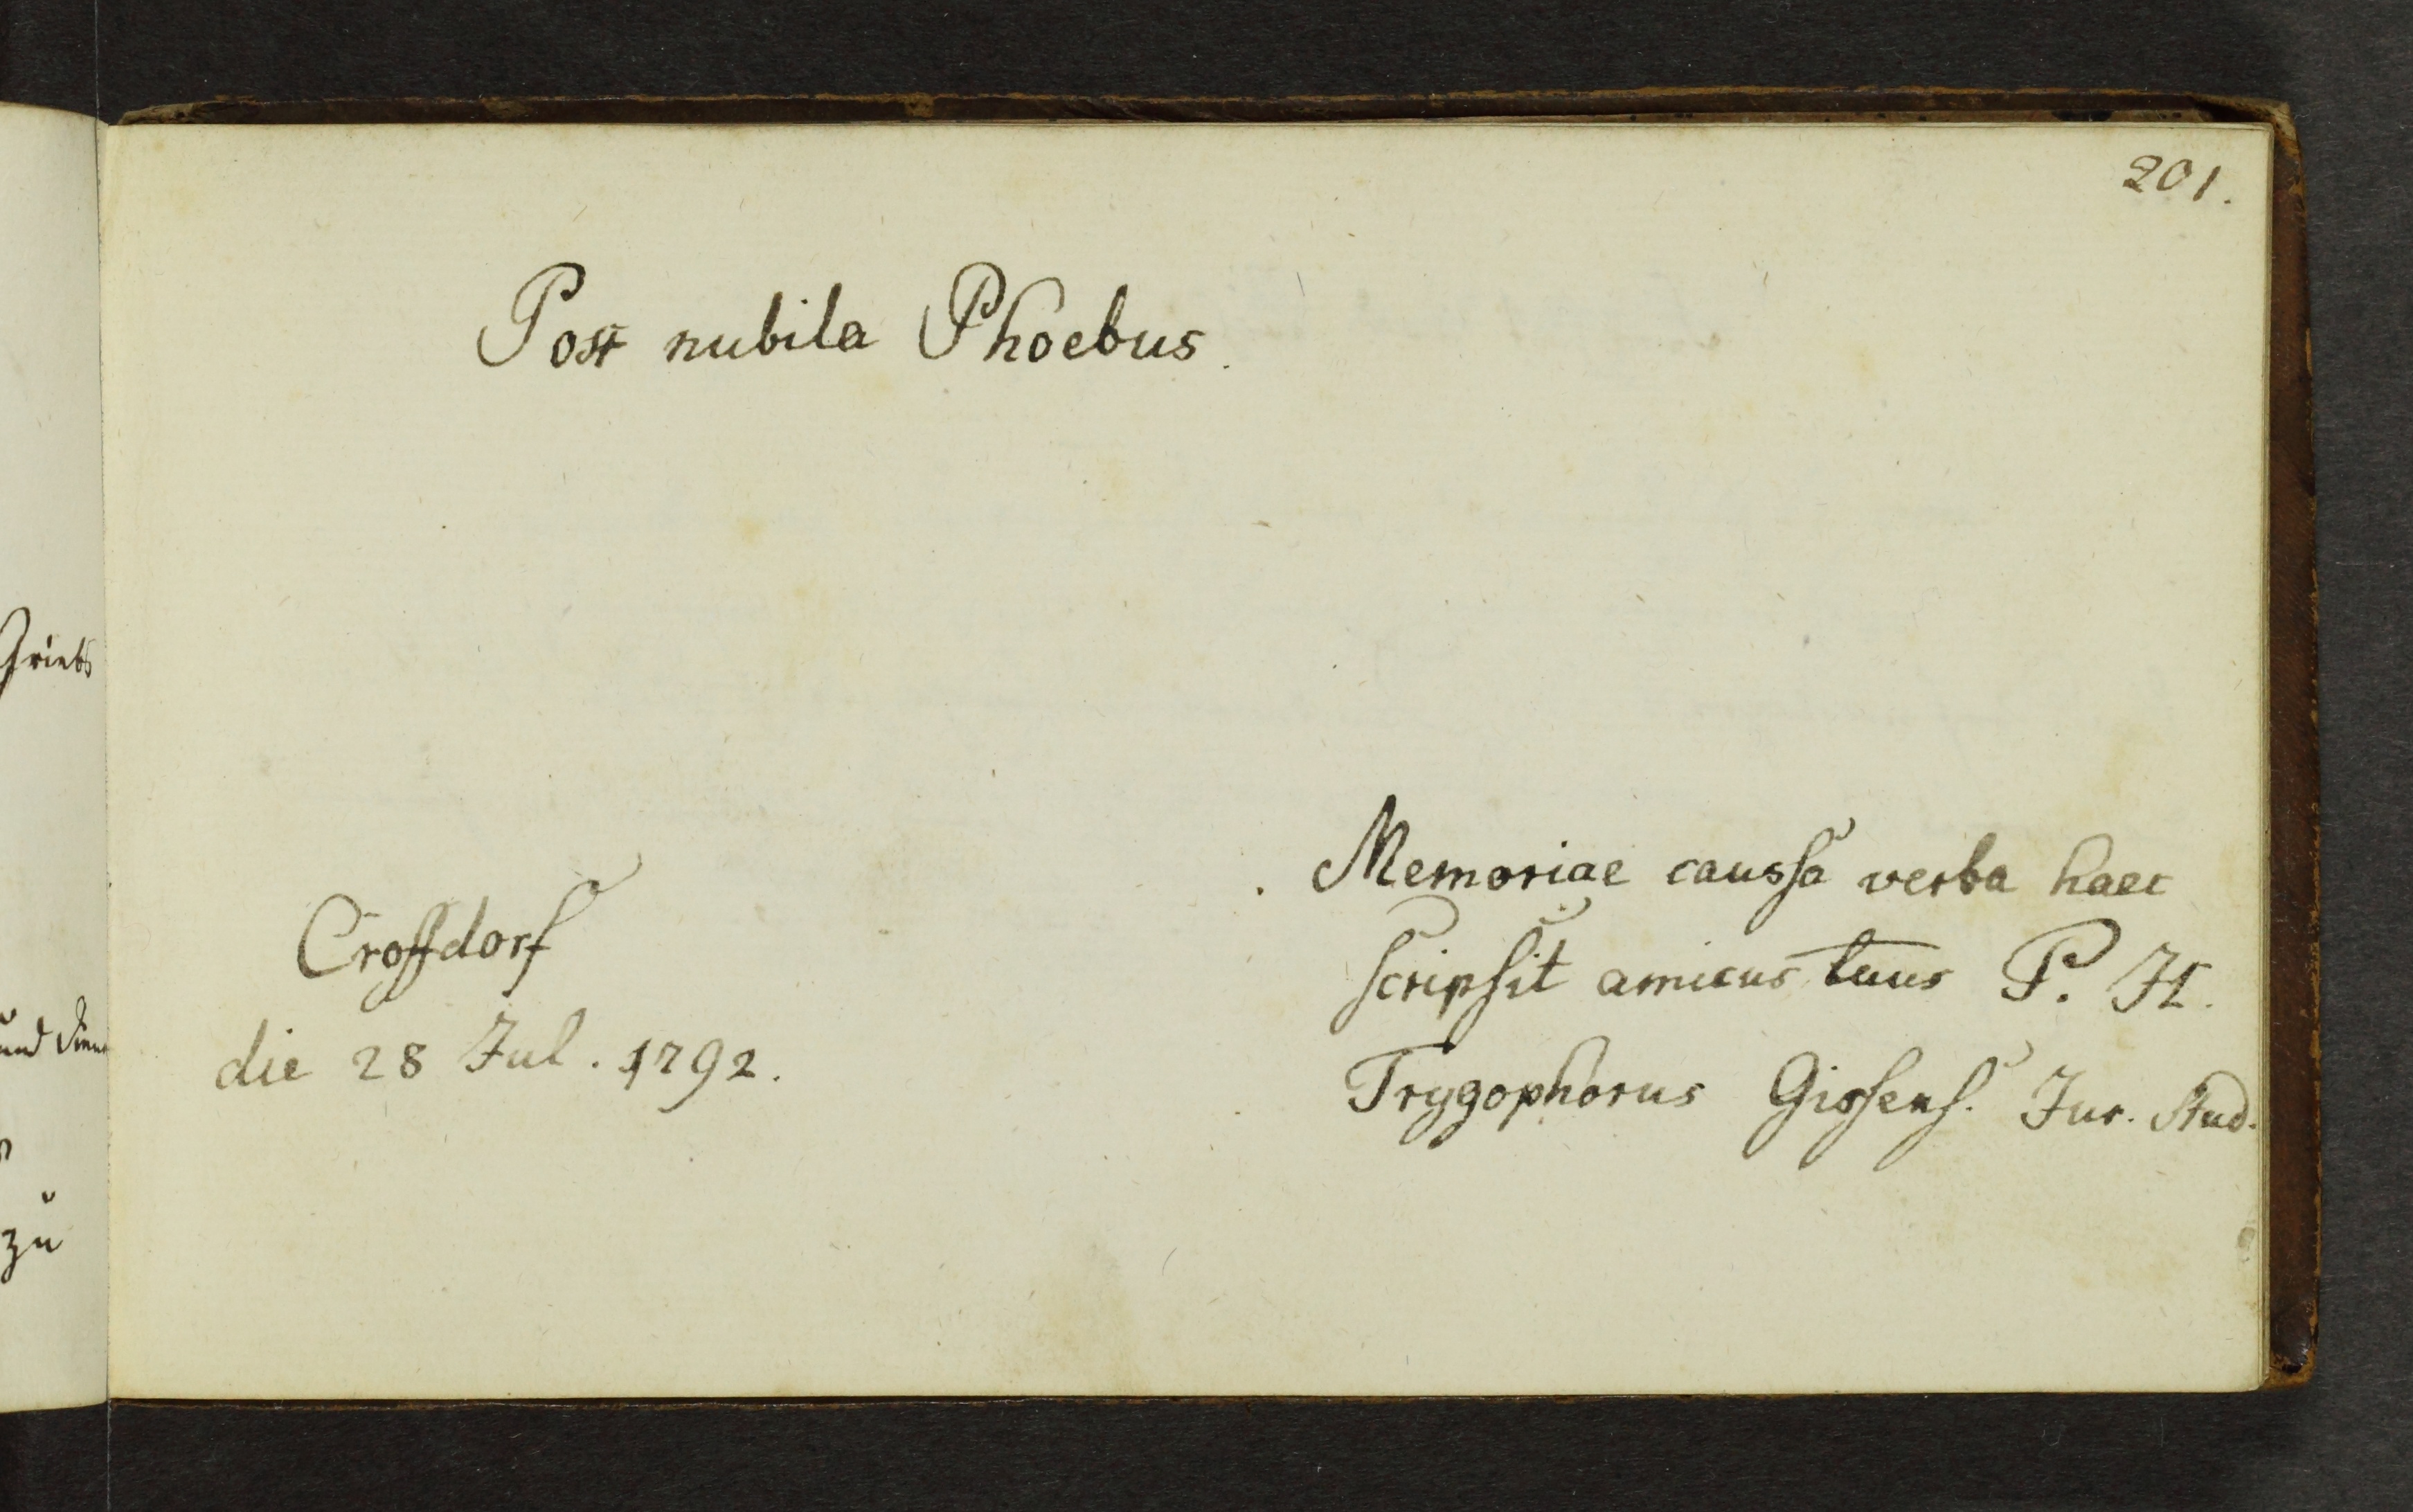 201.
Post nubila Phoebus.
Memoriae caussa verba haec
scripsit amicus tuus P. H.
Trygophorus Gissens. Jur. Stud.
Crossdorf
die 28 Jul. 1792.
und
zu